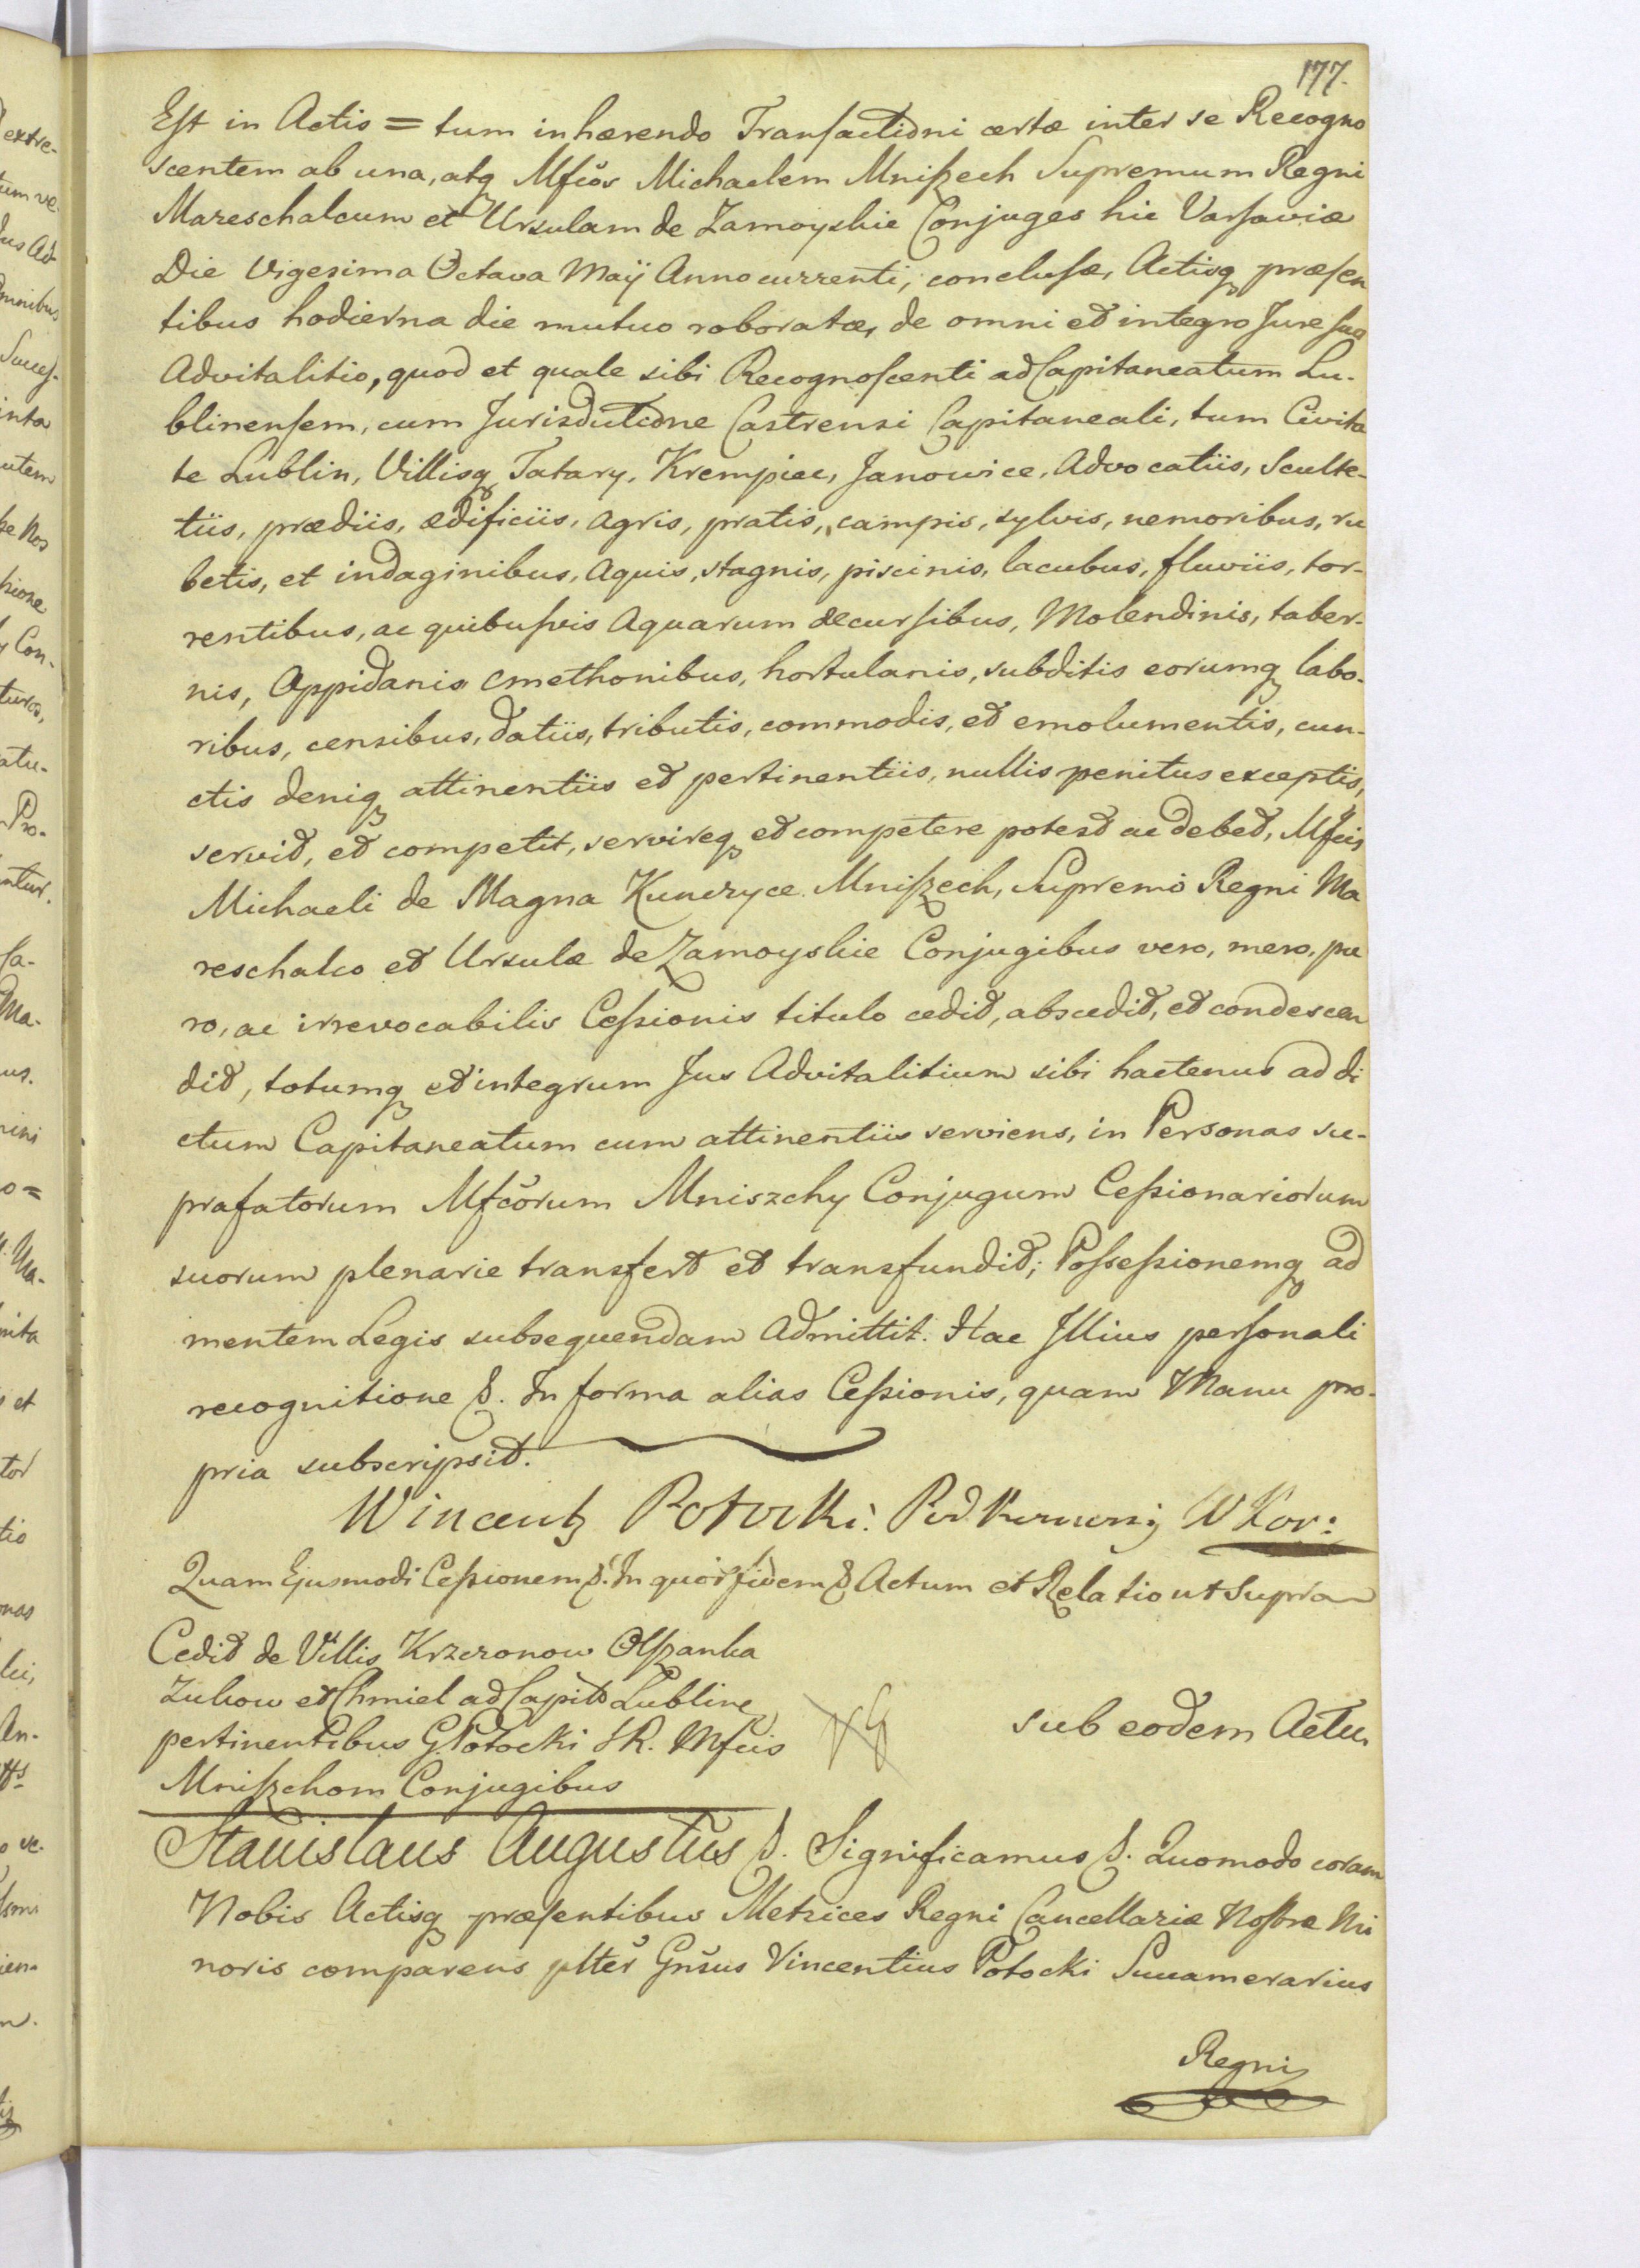 177.
Est in Actis = tum inhærendo Transactioni certæ inter se Recogno
scentem ab una, atq Mfcos Michaelem Mniszech Supremum Regni
Mareschalcum et Ursulam de Zamoyskie Conjuges hic Varsaviæ
Die Vigesima Octava Maÿ Anno currenti, conclusæ, Actisq præsen
tibus hodierna die mutuo roboratæ, de omni et integro Jure suo
Advitalitio, quod et quale sibi Recognoscenti ad Capitaneatum Lu-
blinensem, cum Jurisdictione Castrensi Capitaneali, tum Civita
te Lublin, Villisq Tatary, Krempiec, Janowice, Advocatiis, Sculte-
tiis, prædiis, ædificiis, agris, pratis, campis, sylvis, nemoribus, ru
betis, et indaginibus, Aquis, stagnis, piscinis, lacubus, fluviis, tor-
rentibus, ac quibusvis Aquarum decursibus, Molendinis, taber-
nis, Oppidanis Cmethonibus, hortulanis, subditis eorumq labo-
ribus, censibus, datiis, tributis, commodis, et emolumentis, cun-
ctis deniq attinentiis et pertinentiis, nullis penitus exceptis,
servit, et competit, servireq et competere potest ac debet, Mfcis
Michaeli de Magna Kunczyce Mniszech, Supremo Regni Ma
reschalco et Ursulæ de Zamoyskie Conjugibus vero, mero, pu
ro, ac irrevocabilis Cessionis titulo cedit, abscedit, et condescen
dit, totumq et integrum Jus Advitalitium sibi hactenus ad di
ctum Capitaneatum cum attinentiis serviens, in Personas su-
prafatorum Mfcorum Mniszchy Conjugum Cessionariorum
suorum plenarie transfert et transfundit; Possessionemq ad
mentem Legis subsequendam Admittit. Hac Illius personali
recognitione &. In forma alias Cessionis, quam Manu pro-
pria subscripsit.
Wincenty Potocki. Podkomorzy W Kor:
Quam Ejusmodi Cessionem &. In quor fidem & Actum et Relatio ut Supra
Cedit de Villis Krzczonow Olszanka
Zukow et Chmiel ad Capit Lubline
pertinentibus G. Potocki SR. Mfcis
Mniszchom Conjugibus
sub eodem Actu.
Stanislaus Augustus &. Significamus &. Quomodo coram
Nobis Actisq præsentibus Metrices Regni Cancellariæ Nostræ Mi
noris comparens plter Gnsus Vincentius Potocki Succamerarius
Regni